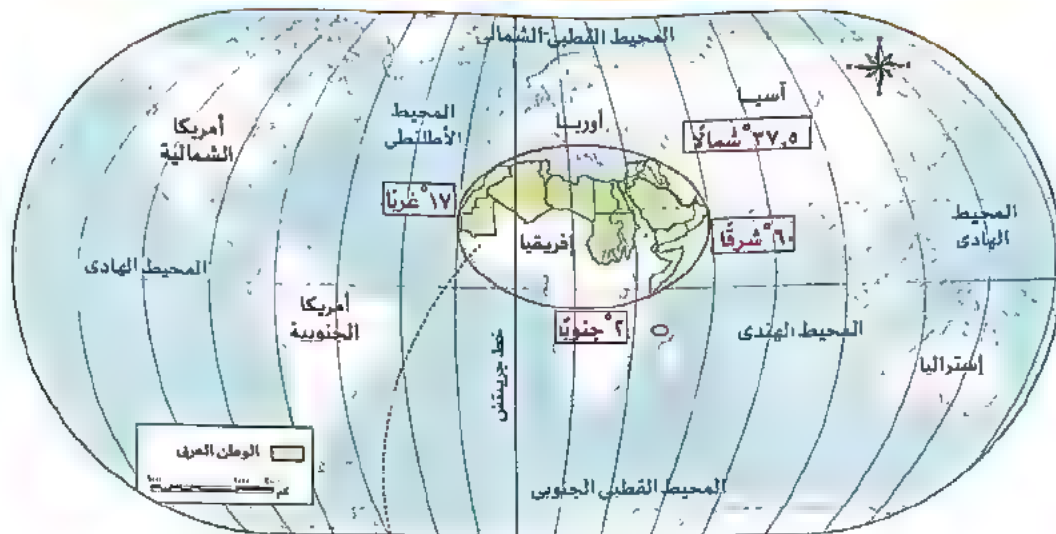 المحيط القطبى الشمالى
آسيا
أوربا
المحيط
الأطلنطى
أمريكا
الشمالية
٣٧,٥° شمالًا
١٧° غربًا
٦٠° شرقًا
المحيط
الهادى
إفريقيا
المحيط الهادى
أمريكا
الجنوبية
٢° جنوبًا
المحيط الهندى
إستراليا
خط جرينتش
الوطن العربى
كم
المحيط القطبى الجنوبى